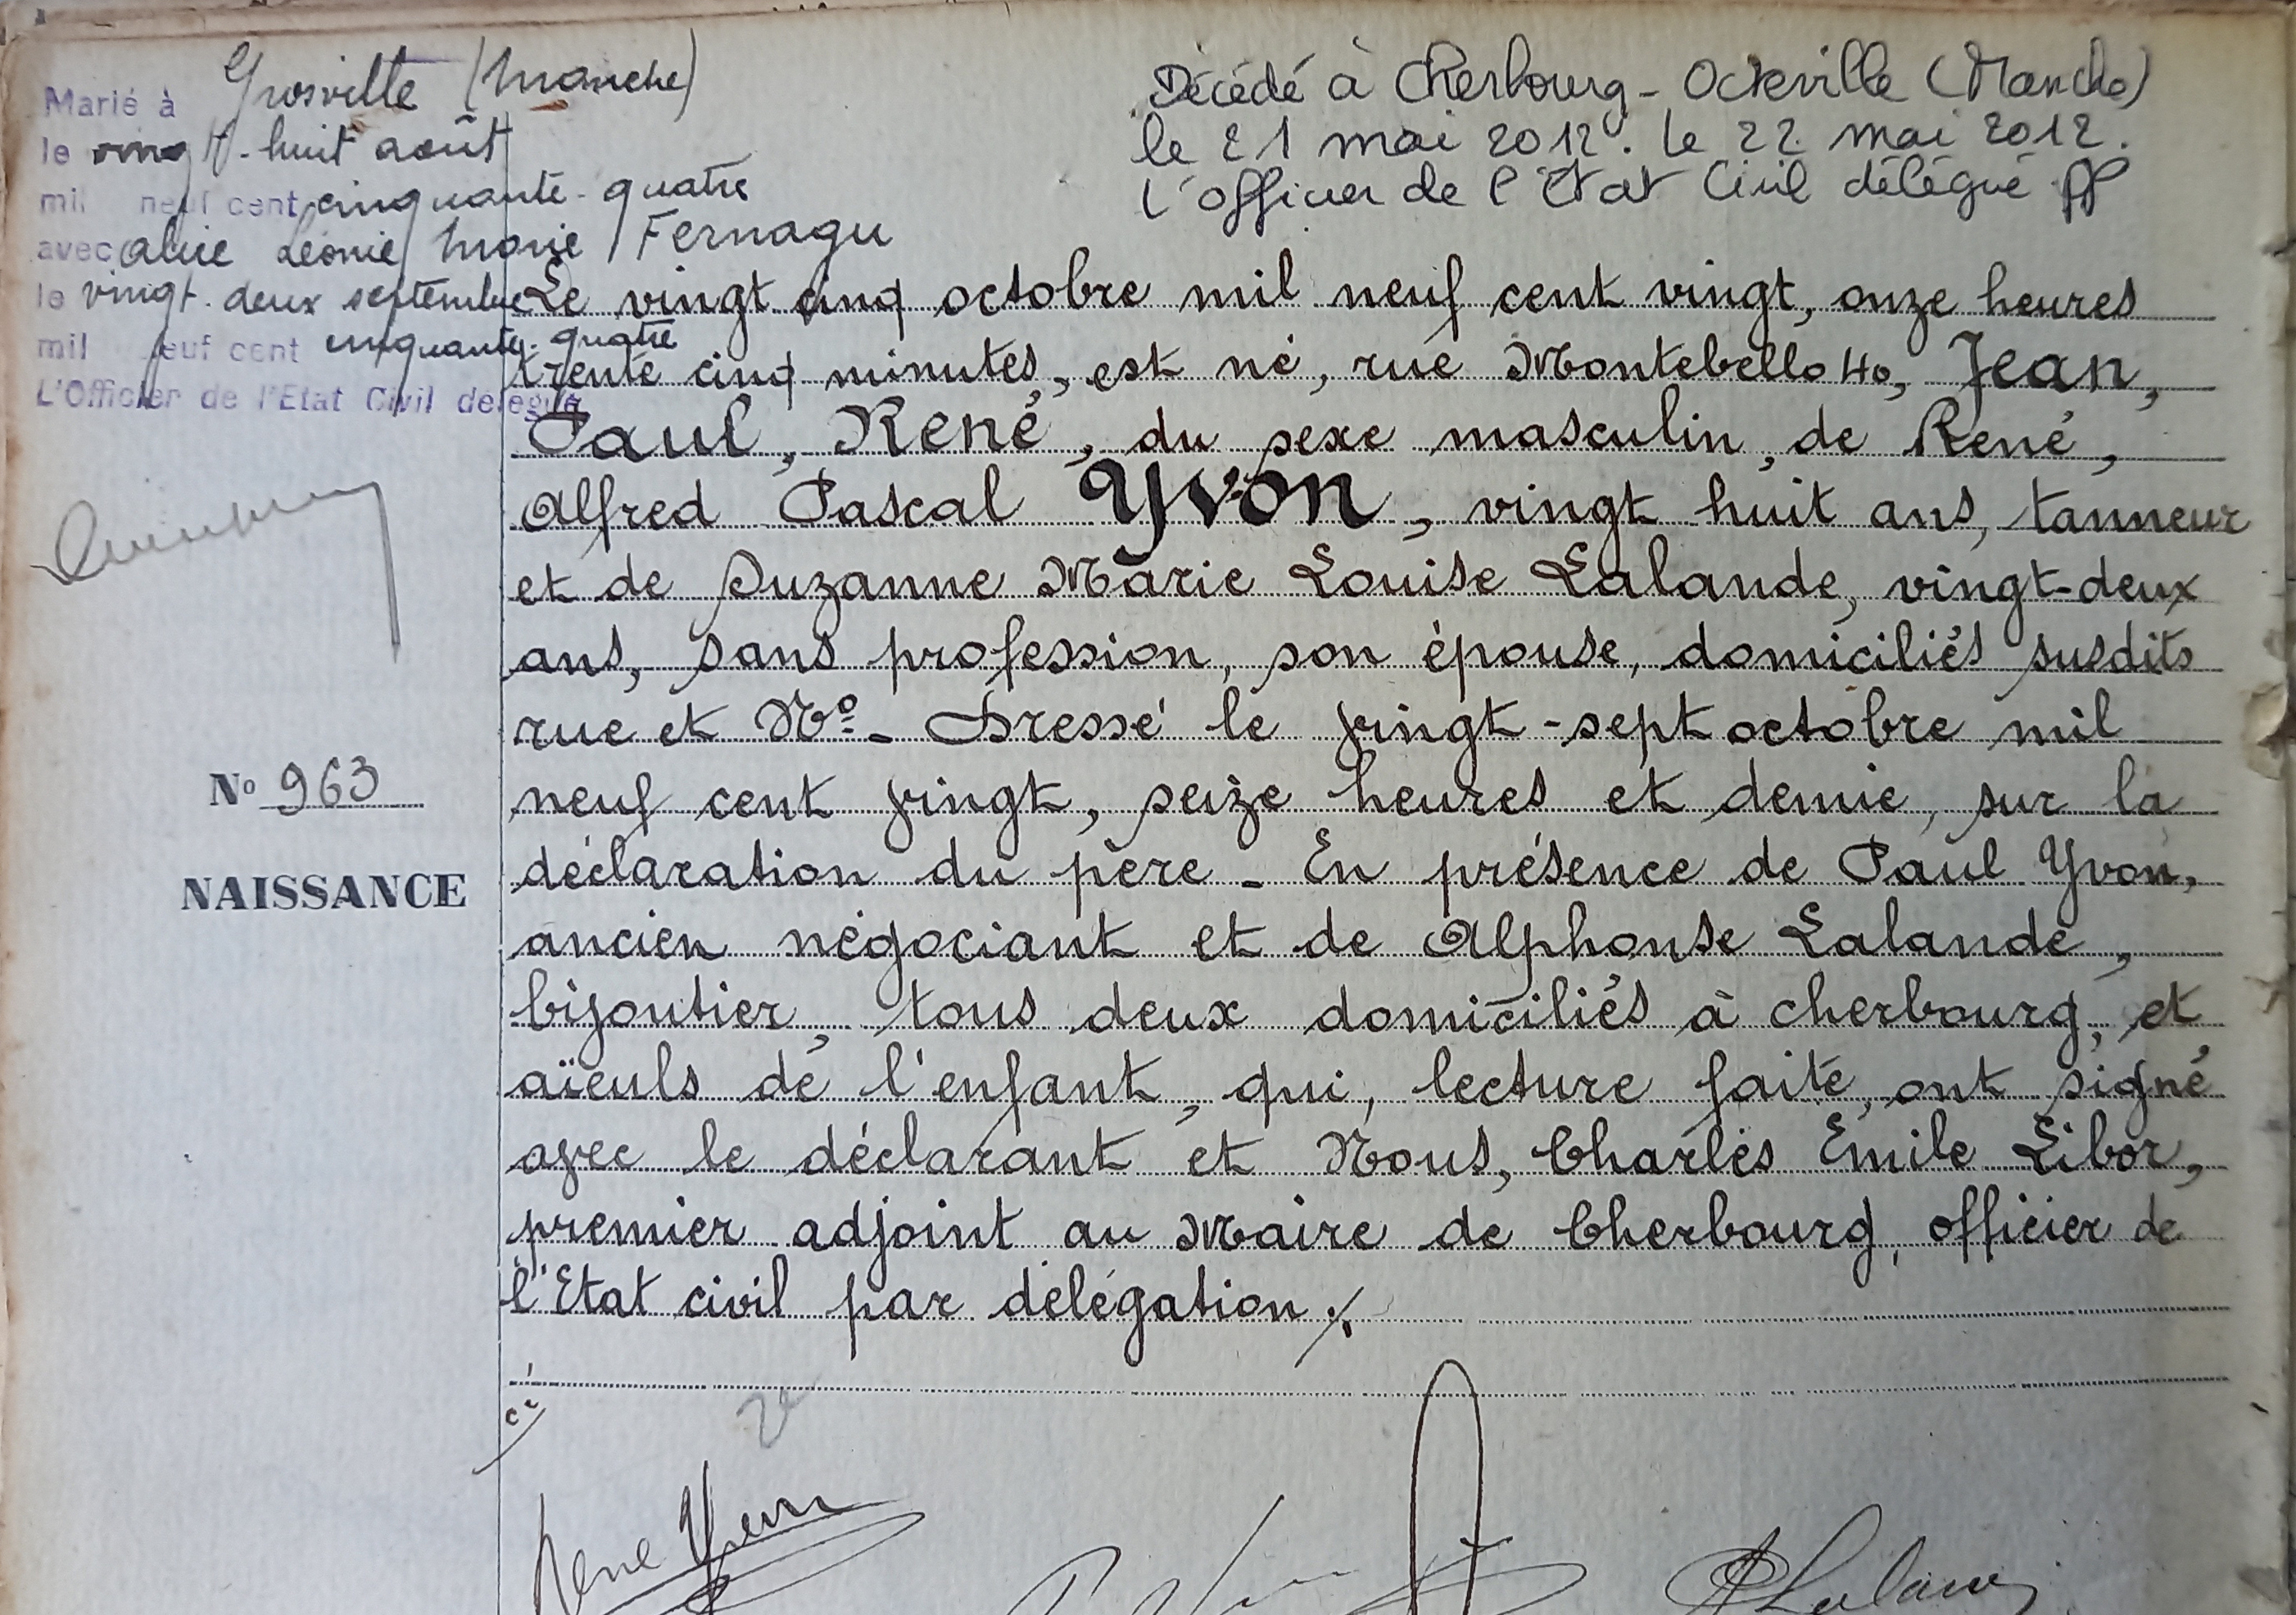 Marié à Grosville (Manche)
le vingt-huit août
mil neuf cent cinquante-quatre
avec Alice Léonie Marie Fernagu
le vingt-deux septembre
mil neuf cent cinquante-quatre
L'Officier de l'Etat Civil délégué
Décédé à Cherbourg-Octeville (Manche)
le 21 mai 2012. le 22 mai 2012.
l'officier de l'Etat Civil délégué
N° 963
NAISSANCE
Le vingt cinq octobre mil neuf cent vingt, onze heures
trente cinq minutes, est né, rue Montebello 40, Jean,
Paul, René, du sexe masculin, de René,
Alfred Pascal Yvon, vingt huit ans, tanneur
et de Suzanne Marie Louise Lalande, vingt-deux
ans, sans profession, son épouse, domiciliés susdits
rue et N° - Dressé le vingt-sept octobre mil
neuf cent vingt, seize heures et demie, sur la
déclaration du père - En présence de Paul Yvon,
ancien négociant et de Alphonse Lalande,
bijoutier, tous deux domiciliés à cherbourg, et
aïeuls de l'enfant, qui, lecture faite, ont signé
avec le déclarant et Nous, Charles Emile Libor,
premier adjoint au Maire de Cherbourg, officier de
l'Etat civil par délégation ./.
René Yvon
A Lalande